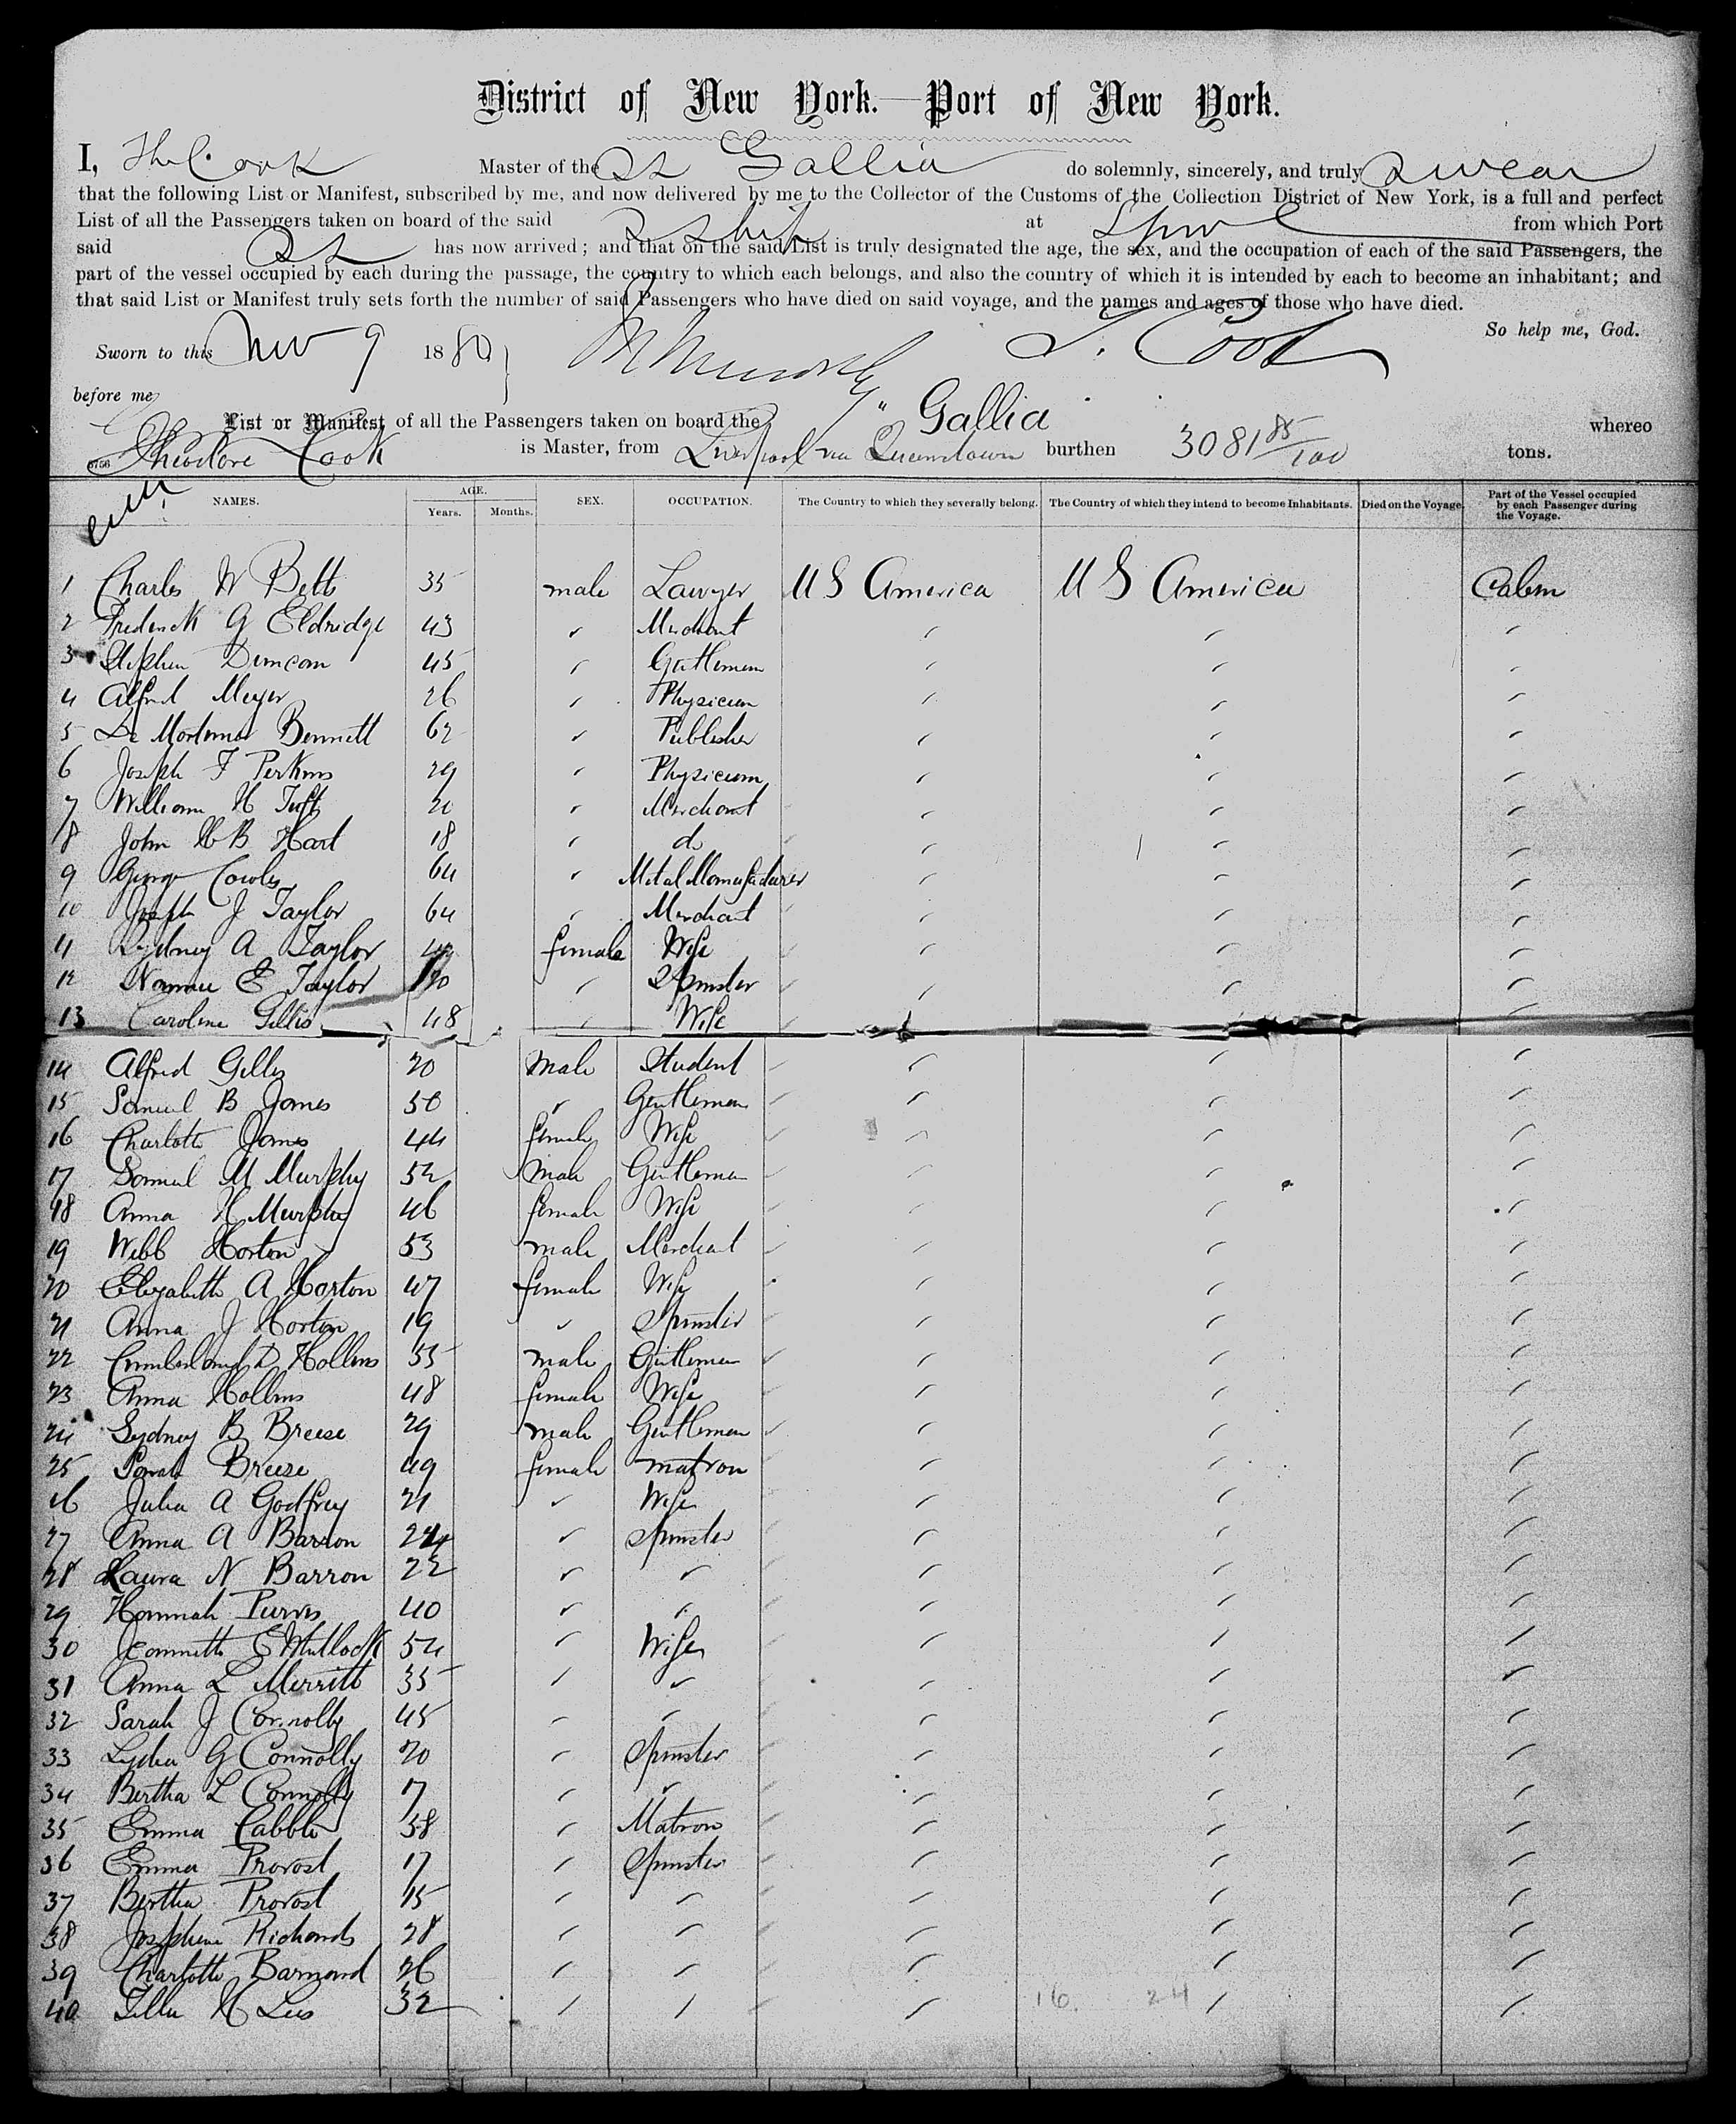 District of New York.—Port of New York.
I, Theo Cook Master of the SS Gallia do solemnly, sincerely, and truly swear
that the following List or Manifest, subscribed by me, and now delivered by me to the Collector of the Customs of the Collection District of New York, is a full and perfect
List of all the Passengers taken on board of the said SShip at Lpool from which Port
said SS has now arrived; and that on the said List is truly designated the age, the sex, and the occupation of each of the said Passengers, the
part of the vessel occupied by each during the passage, the country to which each belongs, and also the country of which it is intended by each to become an inhabitant; and
that said List or Manifest truly sets forth the number of said Passengers who have died on said voyage, and the names and ages of those who have died.
So help me, God.
Sworn to this Nov 9 1880 T. Cook
before me
List or Manifest of all the Passengers taken on board the "Gallia whereo
Theodore Cook is Master, from Liverpool via Queenstown burthen 3081 85/100 tons.
NAMES. AGE. Years. Months. SEX. OCCUPATION. The Country to which they severally belong. The Country of which they intend to become Inhabitants. Died on the Voyage. Part of the Vessel occupied by each Passenger during the Voyage.
1 Charles W Betts 35 male Lawyer U S America U S America Cabin
2 Frederick G Eldridge 43 " Merchant " " "
3 Stephen Duncan 45 " Gentleman " " "
4 Alfred Meyer 26 " Physician " " "
5 De Mortemer Bennett 62 " Publisher " " "
6 Joseph F Perkins 29 " Physician " " "
7 William H Tuft 20 " Merchant " " "
8 John B Hart 18 " do " " "
9 George Cowles 64 " Metal Manufacturer " " "
10 Joseph J Taylor 64 " Merchant " " "
11 Sydney A Taylor female Wife " " "
12 Nannie E Taylor 20 " Spinster " " "
13 Caroline Gillis 48 " Wife " " "
14 Alfred Gillis 20 male Student " " "
15 Samuel B James 50 " Gentleman " " "
16 Charlotte James 44 female Wife " " "
17 Samuel M Murphy 52 male Gentleman " " "
18 Anna H Murphy 46 female Wife " " "
19 Webb Horton 53 male Merchant " " "
20 Elizabeth A Horton 47 female Wife " " "
21 Anna J Horton 19 " Spinster " " "
22 Cumberland D Hollins 55 male Gentleman " " "
23 Anna Hollins 48 female Wife " " "
24 Sydney B Breese 29 male Gentleman " " "
25 Sarah Breese 49 female matron " " "
26 Julia A Godfrey 21 " Wife " " "
27 Anna A Barron 24 " Spinster " " "
28 Laura N Barron 22 " " " " "
29 Hannah Purvis 40 " " " " "
30 Jeannette S 54 " Wife " " "
31 Anna L Merritt 35 " " " " "
32 Sarah J Connolly 45 " " " " "
33 Lydia G Connolly 20 " Spinster " " "
34 Bertha L Connolly 17 " " " " "
35 Emma Cabble 38 " Matron " " "
36 Emma Provost 17 " Spinster " " "
37 Bertha Provost 15 " " " " "
38 Josephine Richards 28 " " " " "
39 Charlotte Barnard 26 " " " " "
40 Tillie H Lees 32 " " " " "
16. 24